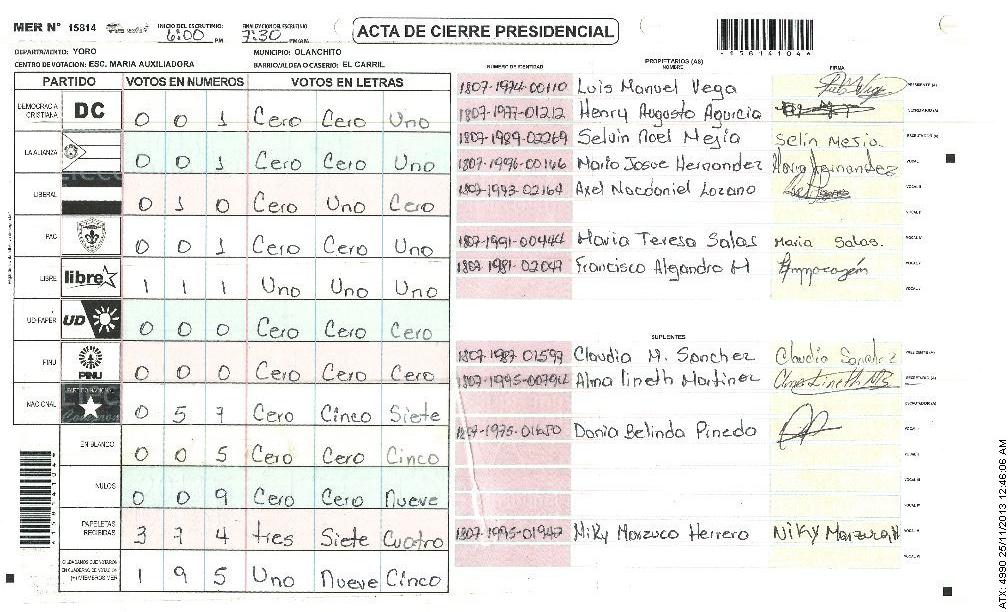 MER N° 15814 INICIO DEL ESCRUTINIO: 6:00 PM FINALIZACION DEL ESCRUTINIO: 7:30 PM/AM ACTA DE CIERRE PRESIDENCIAL *15814104*
DEPARTAMENTO: YORO MUNICIPIO: OLANCHITO
CENTRO DE VOTACION: ESC. MARIA AUXILIADORA BARRIO/ALDEA O CASERIO: EL CARRIL
PARTIDO VOTOS EN NUMEROS VOTOS EN LETRAS
DEMOCRACIA CRISTIANA DC 0 0 1 Cero Cero Uno
LA ALIANZA 0 0 1 Cero Cero Uno
LIBERAL 0 1 0 Cero Uno Cero
PAC 0 0 1 Cero Cero Uno
LIBRE libre 1 1 1 Uno Uno Uno
UD-FAPER UD 0 0 0 Cero Cero Cero
PINU PINU 0 0 0 Cero Cero Cero
NACIONAL 0 5 7 Cero Cinco Siete
EN BLANCO 0 0 5 Cero Cero Cinco
NULOS 0 0 9 Cero Cero Nueve
PAPELETAS RECIBIDAS 3 7 4 tres Siete Cuatro
CIUDADANOS QUE VOTARON EN CUADERNO DE VOTACION (+) MIEMBROS MER 1 9 5 Uno Nueve Cinco
PROPIETARIOS (AS)
NUMERO DE IDENTIDAD NOMBRE FIRMA
1807-1974-00110 Luis Manuel Vega PRESIDENTE (A)
1807-1977-01212 Henry Augusto Aguricia SECRETARIO (A)
1807-1989-02269 Selvin Noel Mejia Selin Mesia. ESCRUTADOR (A)
1807-1996-00166 Mario Josue Hernandez Hernandez VOCAL I
1807-1993-02164 Axel Nacdaniel Lozano VOCAL II
1807-1991-00444 Maria Teresa Salas Maria Salas.
1807-1981-02047 Francisco Alejandro M
SUPLENTES
1807-1987-01599 Claudia M. Sanchez Claudia Sanchez PRESIDENTE (A)
1807-1995-00794 Alma lineth Martinez SECRETARIO (A)
ESCRUTADOR (A)
1807-1975-01650 Dania Belinda Pinedo VOCAL I
1807-1995-01947 Niky Marzuco Herrero
ATX: 4990 25/11/2013 12:46:06 AM